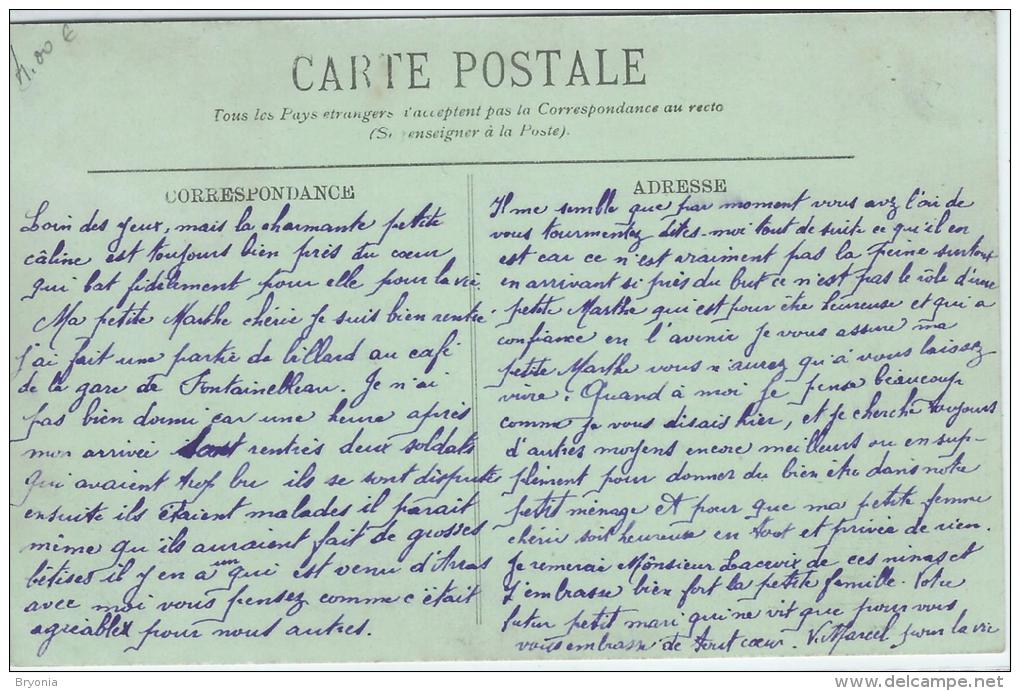 4.00 €
CARTE POSTALE
Tous les Pays etrangers n'acceptent pas la Correspondance au recto
(Se renseigner à la Poste).
CORRESPONDANCE
Loin des yeux, mais la charmante petite
câline est toujours bien près du cœur
qui bat fidèlement pour elle pour la vie.
Ma petite Marthe chérie Je suis bien rentré
J'ai fait une partie de billard au café
de la gare de Fontainebleau. Je n'ai
pas bien dormi car une heure après
mon arrivée sont rentrés deux soldats
qui avaient trop bu ils se sont disputé
ensuite ils étaient malades il parait
même qu'ils auraient fait de grosses
bêtises il y en a un qui est venu d'Arras
avec moi vous pensez comme c'était
agréable pour nous autres.
ADRESSE
Il me semble que par moment vous avez l'air de
vous tourmentez dites-moi tout de suite ce qu'il en
est car ce n'est vraiment pas la peine surtout
en arrivant si près du but ce n'est pas le rôle d'une
petite Marthe qui est pour être heureuse et qui a
confiance en l'avenir Je vous assure ma
petite Marthe vous n'aurez qu'à vous laissez
vivre. Quand à moi je pense beaucoup
comme je vous disais hier, et je cherche toujours
d'autres moyens encore meilleurs ou en sup-
plément pour donner du bien etre dans notre
petit ménage Et pour que ma petite femme
chérie soit heureuse en tout et privée de rien.
Je remerai Monsieur Lacroix de ces ninas et
J'embrasse bien fort la petite famille. Votre
futur petit mari qui ne vit que pour vous
vous embrasse de tout cœur. V. Marcel pour la vie
Bryonia
delcampe.net